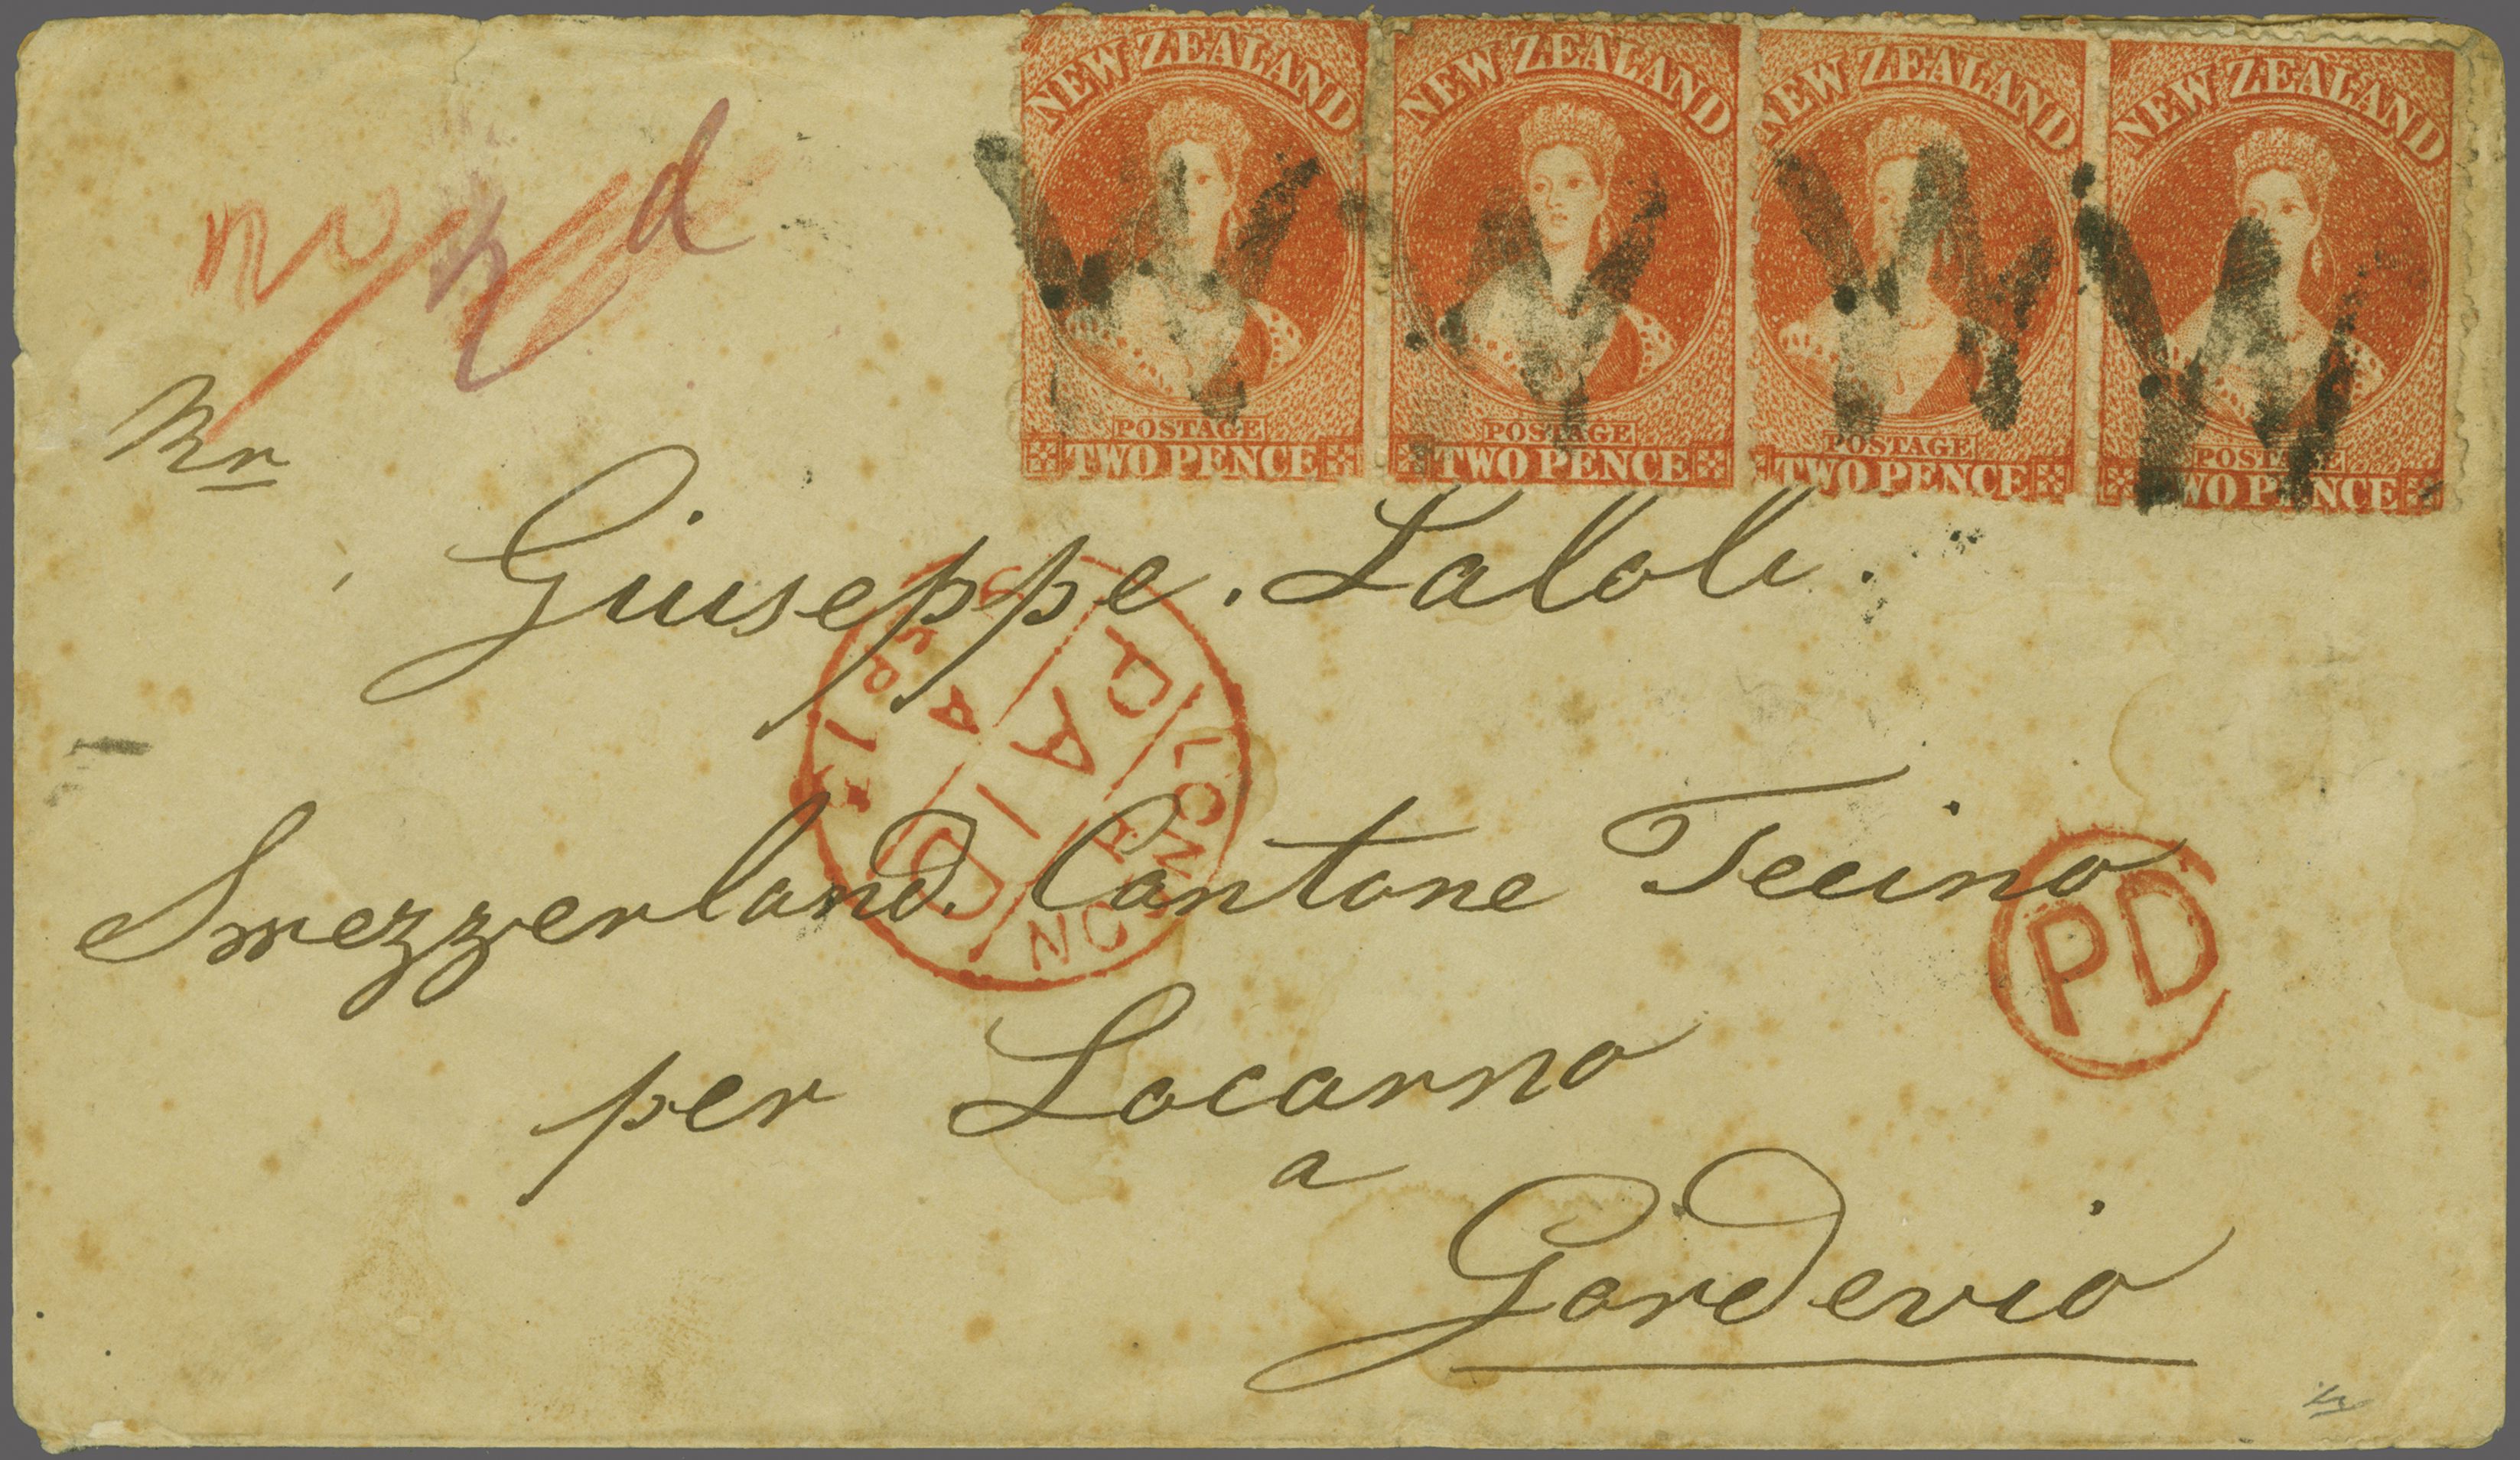 NEW ZEALAND NEW ZEALAND NEW ZEALAND NEW ZEALAND
POSTAGE POSTAGE POSTAGE POSTAGE
TWO PENCE TWO PENCE TWO PENCE TWO PENCE
d
Mr
Giuseppe. Laloli.
Smezzerland. Cantone Tecino
per Locarno
a
Gordevio
LONDON
PAID
PD